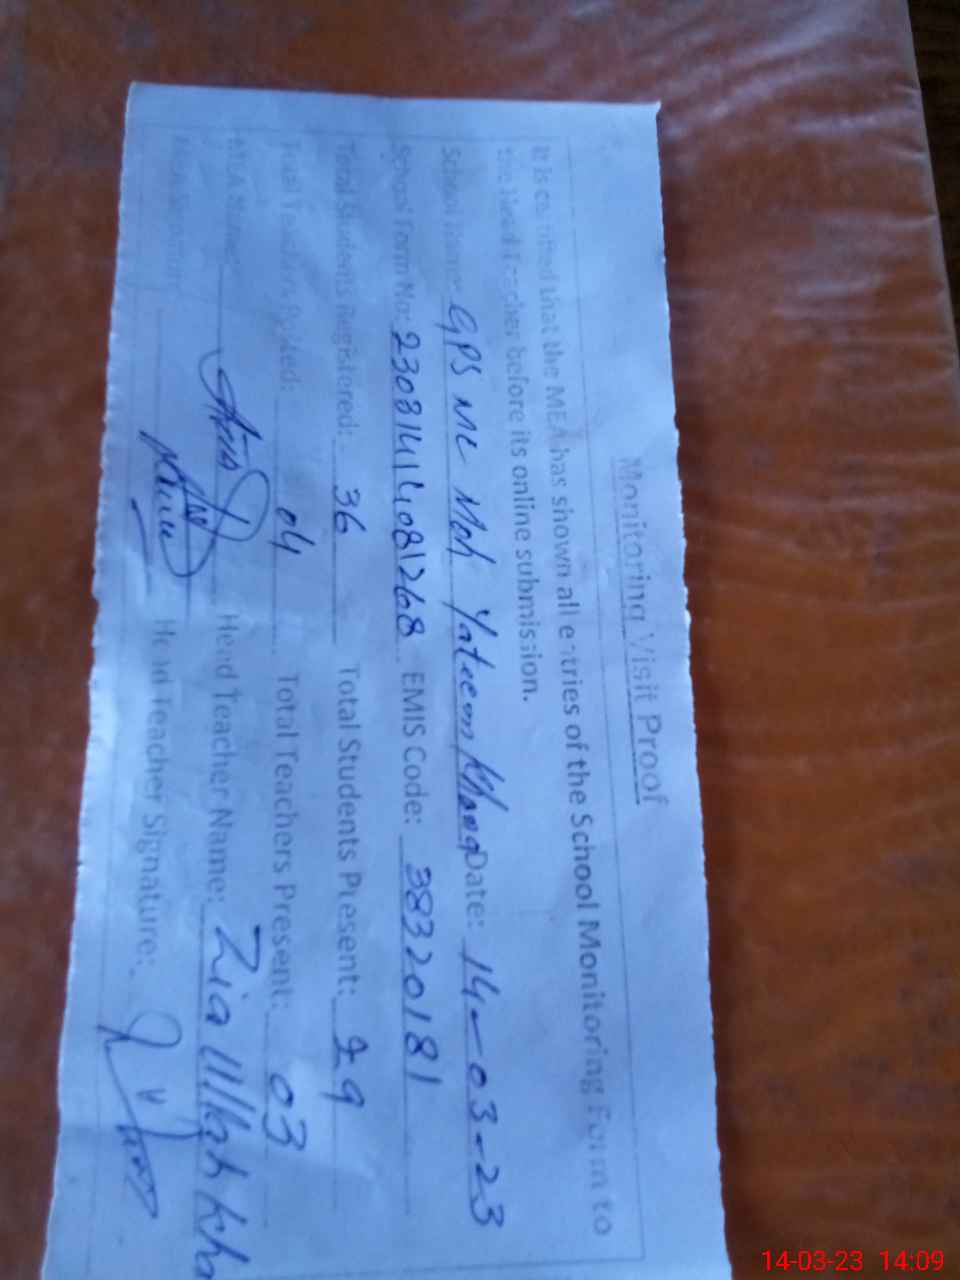 Monitoring Visit Proof
It is certified that the MEA has shown all entries of the School Monitoring Form to
the Head Teacher before its online submission.
School Name: GPS MC Moh Yateem Khana Date: 14-03-23
School Form No: EMIS Code: 3832018 1
Total Students Registered: 36 Total Students Present: 29
Total Teachers Posted: 04 Total Teachers Present: 03
MEA Name: Head Teacher Name: Zia Ullah Kha
MEA Signature: Head Teacher Signature:
14-03-23 14:09